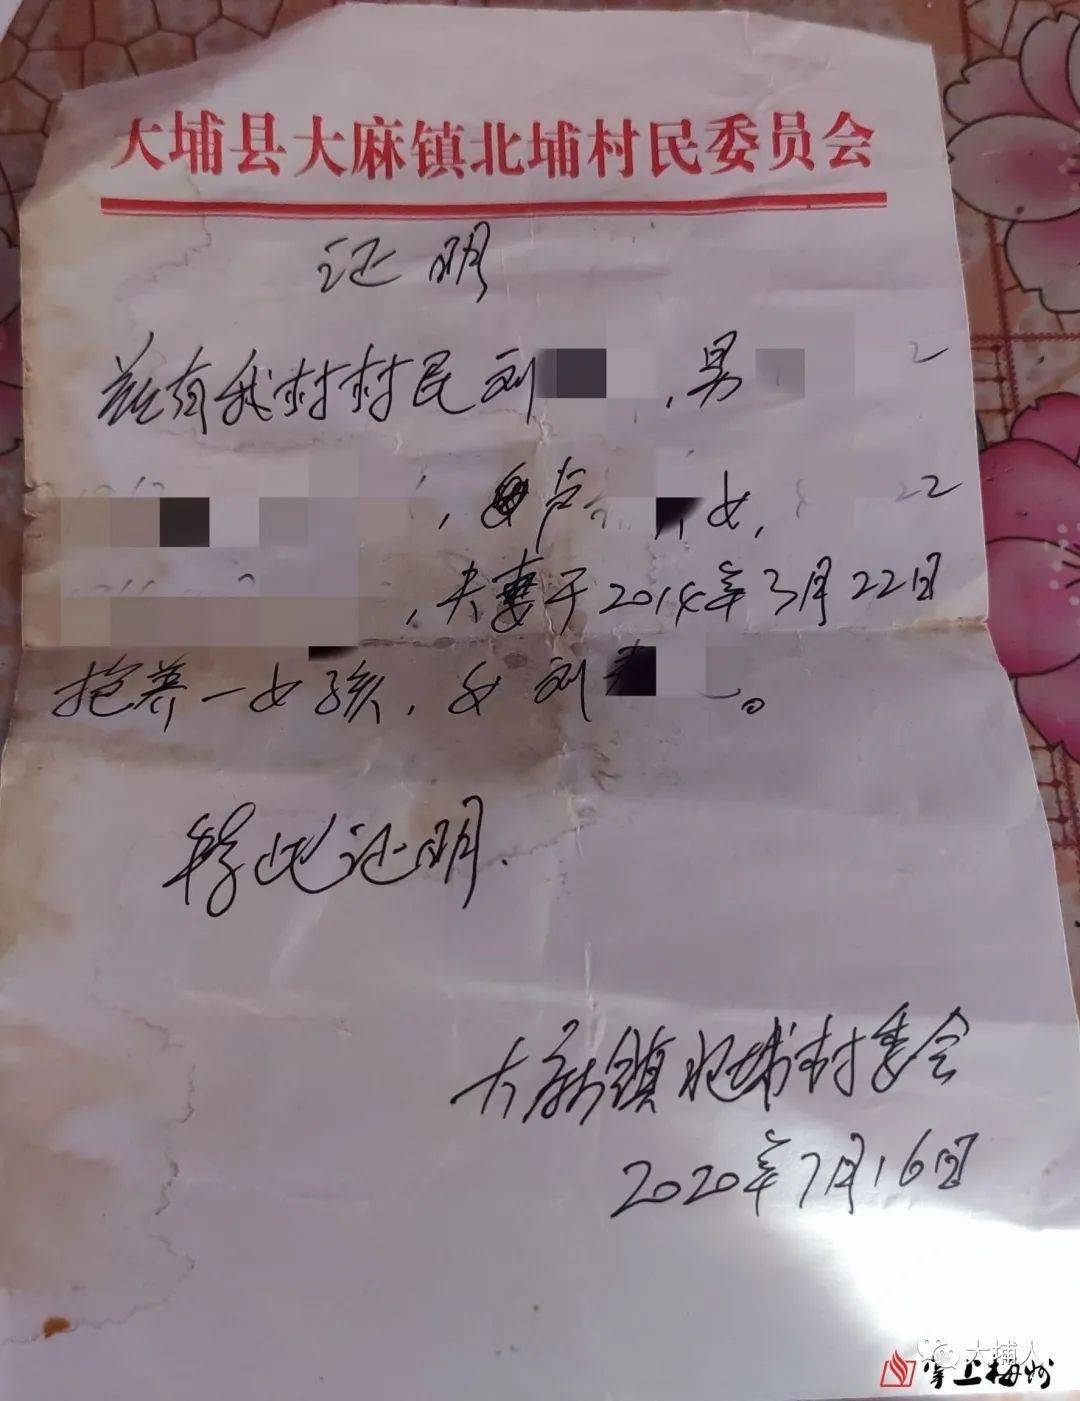 大埔县大麻镇北埔村民委员会
证明
兹有我村村民刘 ,男 2
, 卢 女, 22
,夫妻于2014年3月22日
抱养一女孩,女刘 。
特此证明.
大麻镇北埔村委会
2020年7月16日
大埔人
掌上梅州